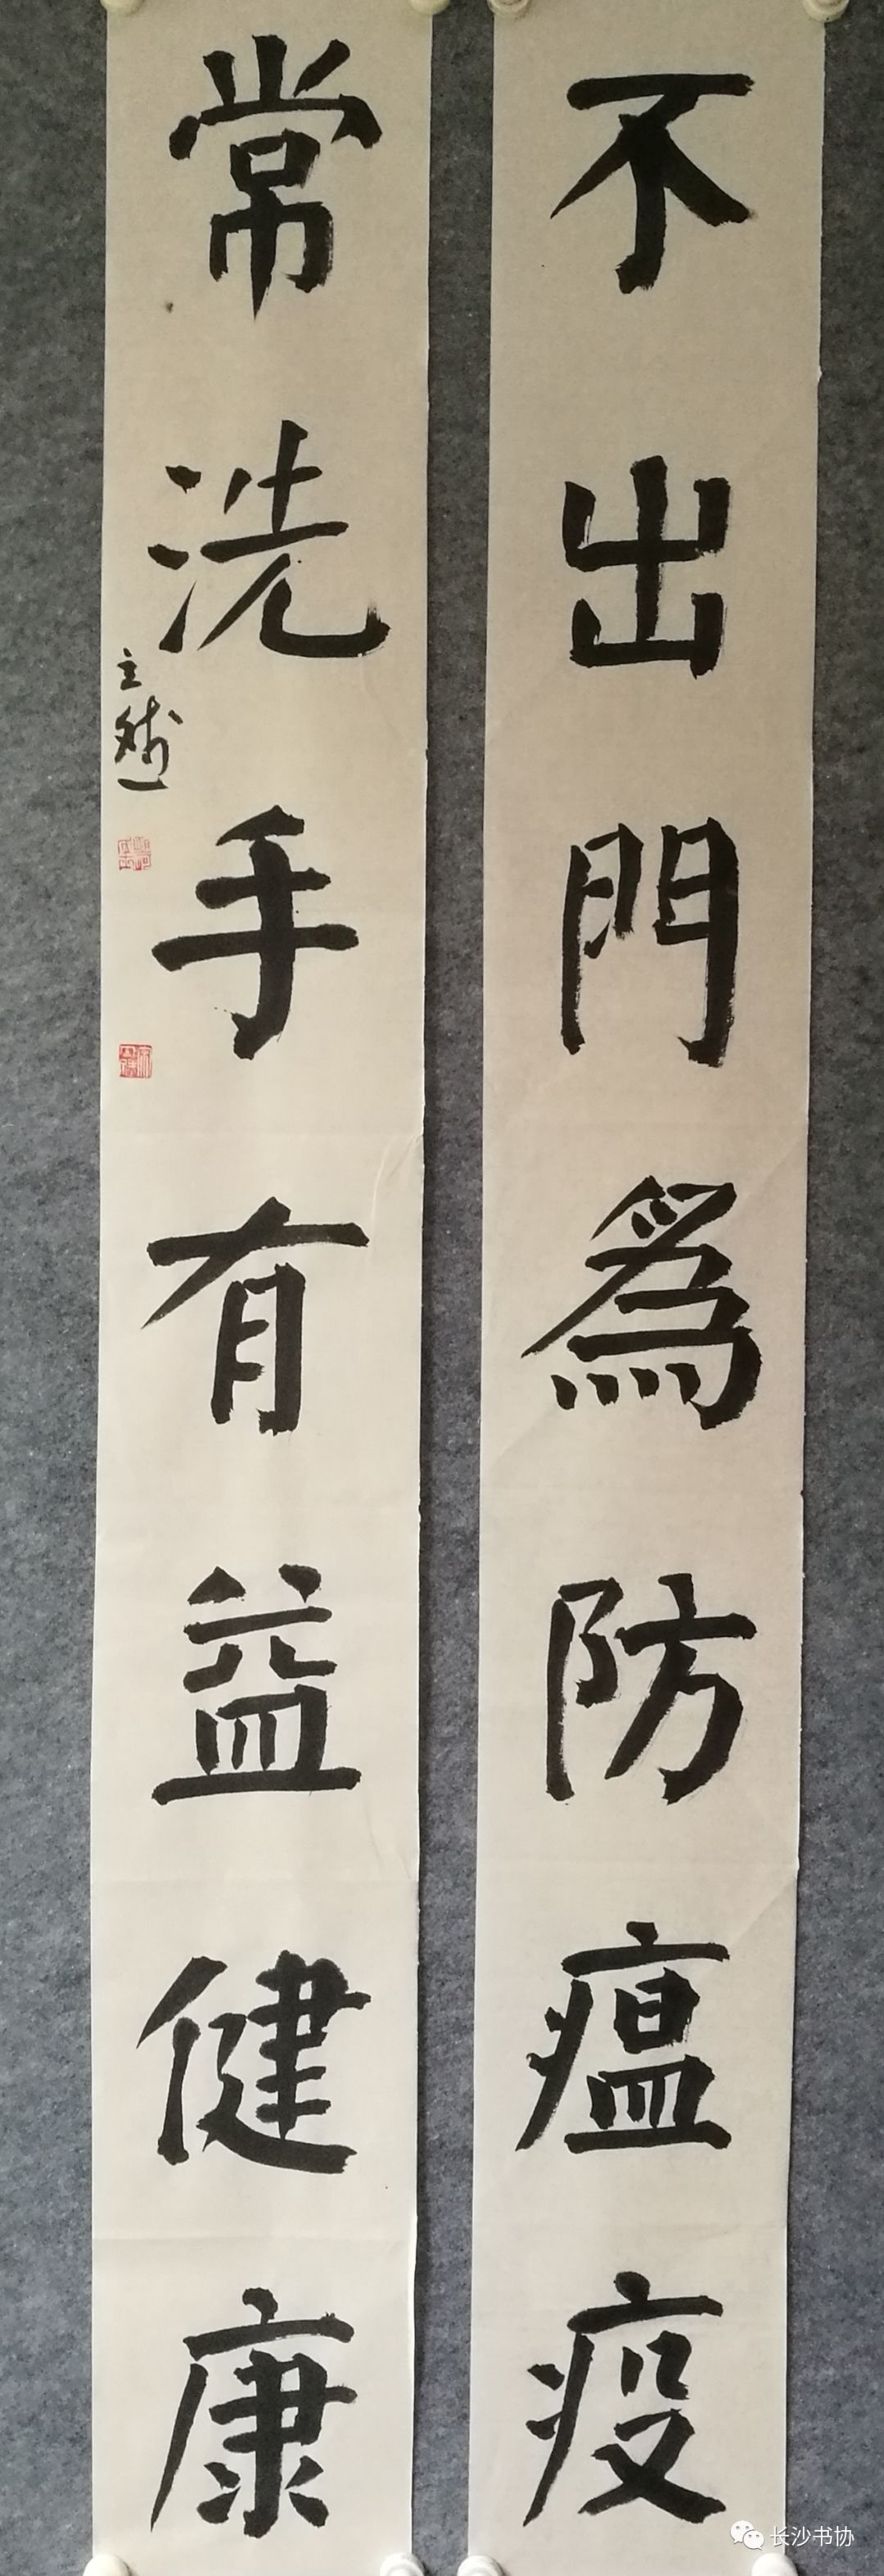 不出門為防瘟疫
常洗手有益健康
长沙书协